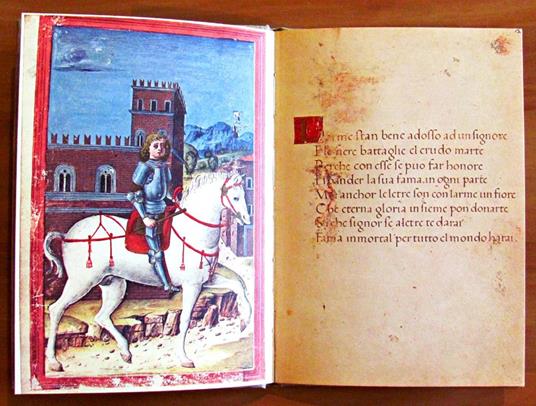 Larme stan bene adosso ad un signore
E le fiere battaglie el crudo marte
Perche con esse se puo far honore
Et spander la sua fama in ogni parte
Ma anchor le letre son con larme un fiore
Che eterna gloria insieme pon donarte
Si che signor se a letre te darai
Fama inmortal per tutto el mondo harai